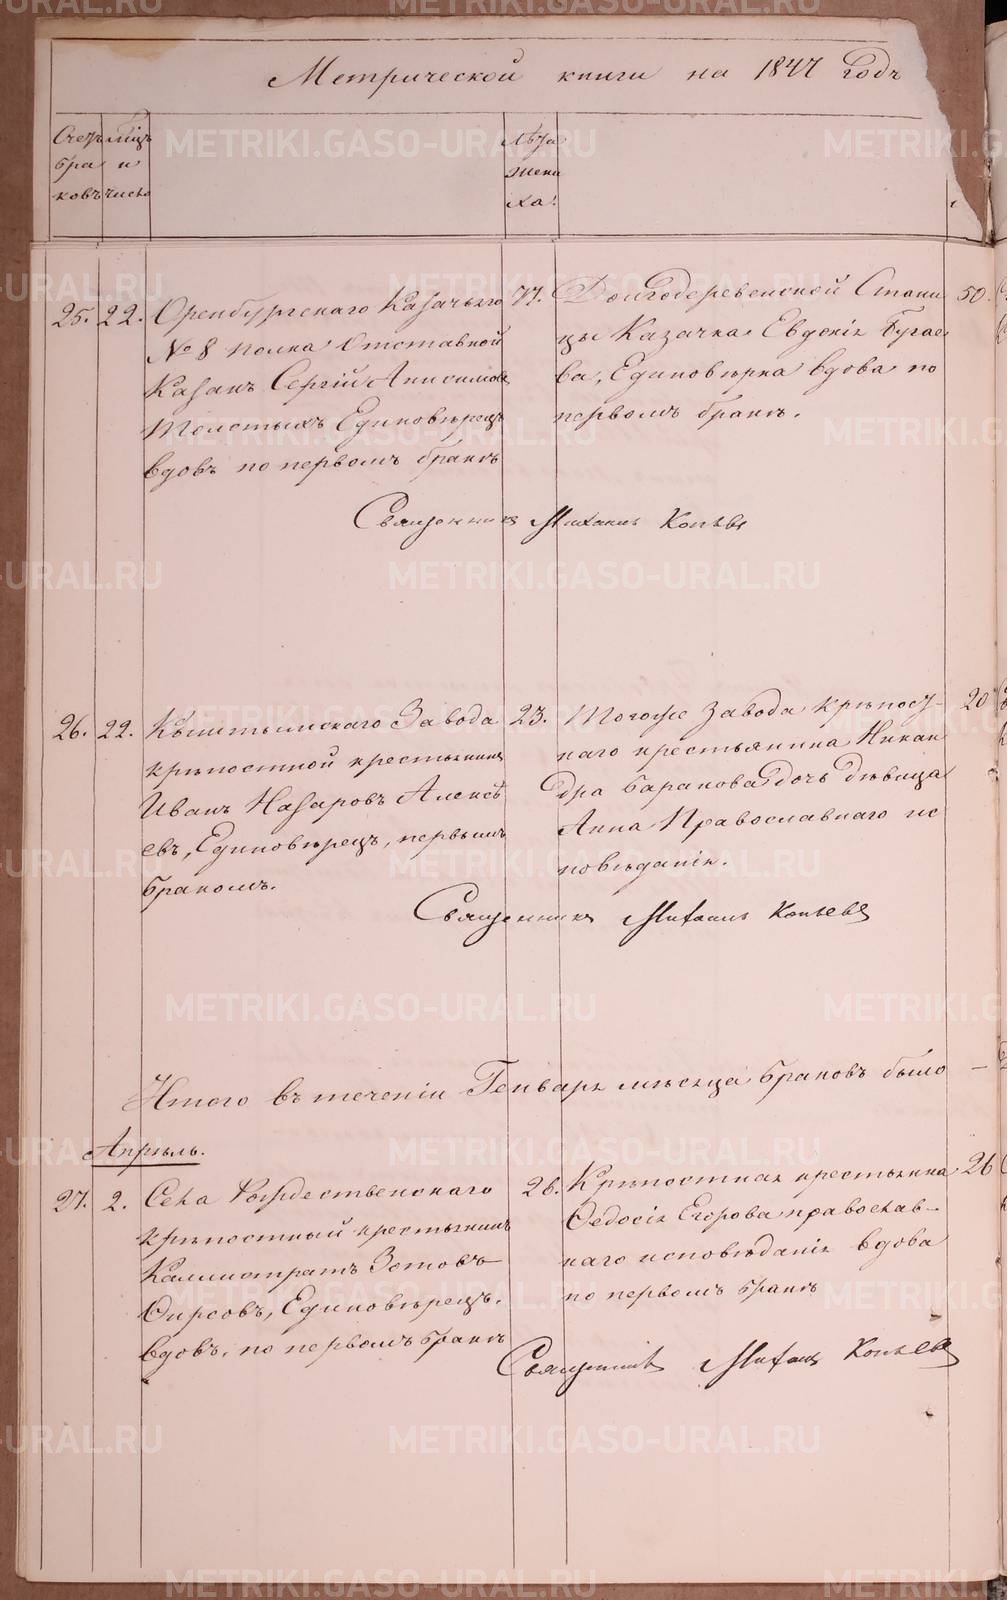 Метрической книги на 1847 годъ
Счетъ бра ковъ
мѣцъ и число
Лѣта жени ха.
25. 22. Оренбургскаго Казачьяго 77. Долгодеревенской Стани 50.
№ 8 полка Отставной цы Казачка Евдокія Бугае
Казакъ Сергій Анисимовъ ва, Единовѣрка вдова по
Толстыхъ Единовѣрецъ первомъ бракѣ.
вдовъ по первомъ бракѣ
Священникъ Михаилъ Копьевъ
26. 22. Кыштымскаго Завода 23. Тогоже Завода крѣпост- 20
крѣпостной крестьянинъ наго крестьянина Никан
Иванъ Назаровъ Алексѣ дра Баранова дочь дѣвица
евъ, Единовѣрецъ, первымъ Анна Православнаго ис
бракомъ. повѣданія.
Священникъ Михаилъ Копьевъ
Итого въ теченіи Генваря мѣсяца браковъ было —
Апрѣль.
27. 2. Села Рождественскаго 28. Крѣпостная крестьянка 26
крѣпостный крестьянинъ Ѳедосія Егорова православ-
Каллистратъ Зотовъ наго исповѣданія вдова
Ѳирсовъ, Единовѣрецъ. по первомъ бракѣ
вдовъ, по первомъ бракѣ
Священникъ Михаилъ Копьевъ
METRIKI.GASO-URAL.RU